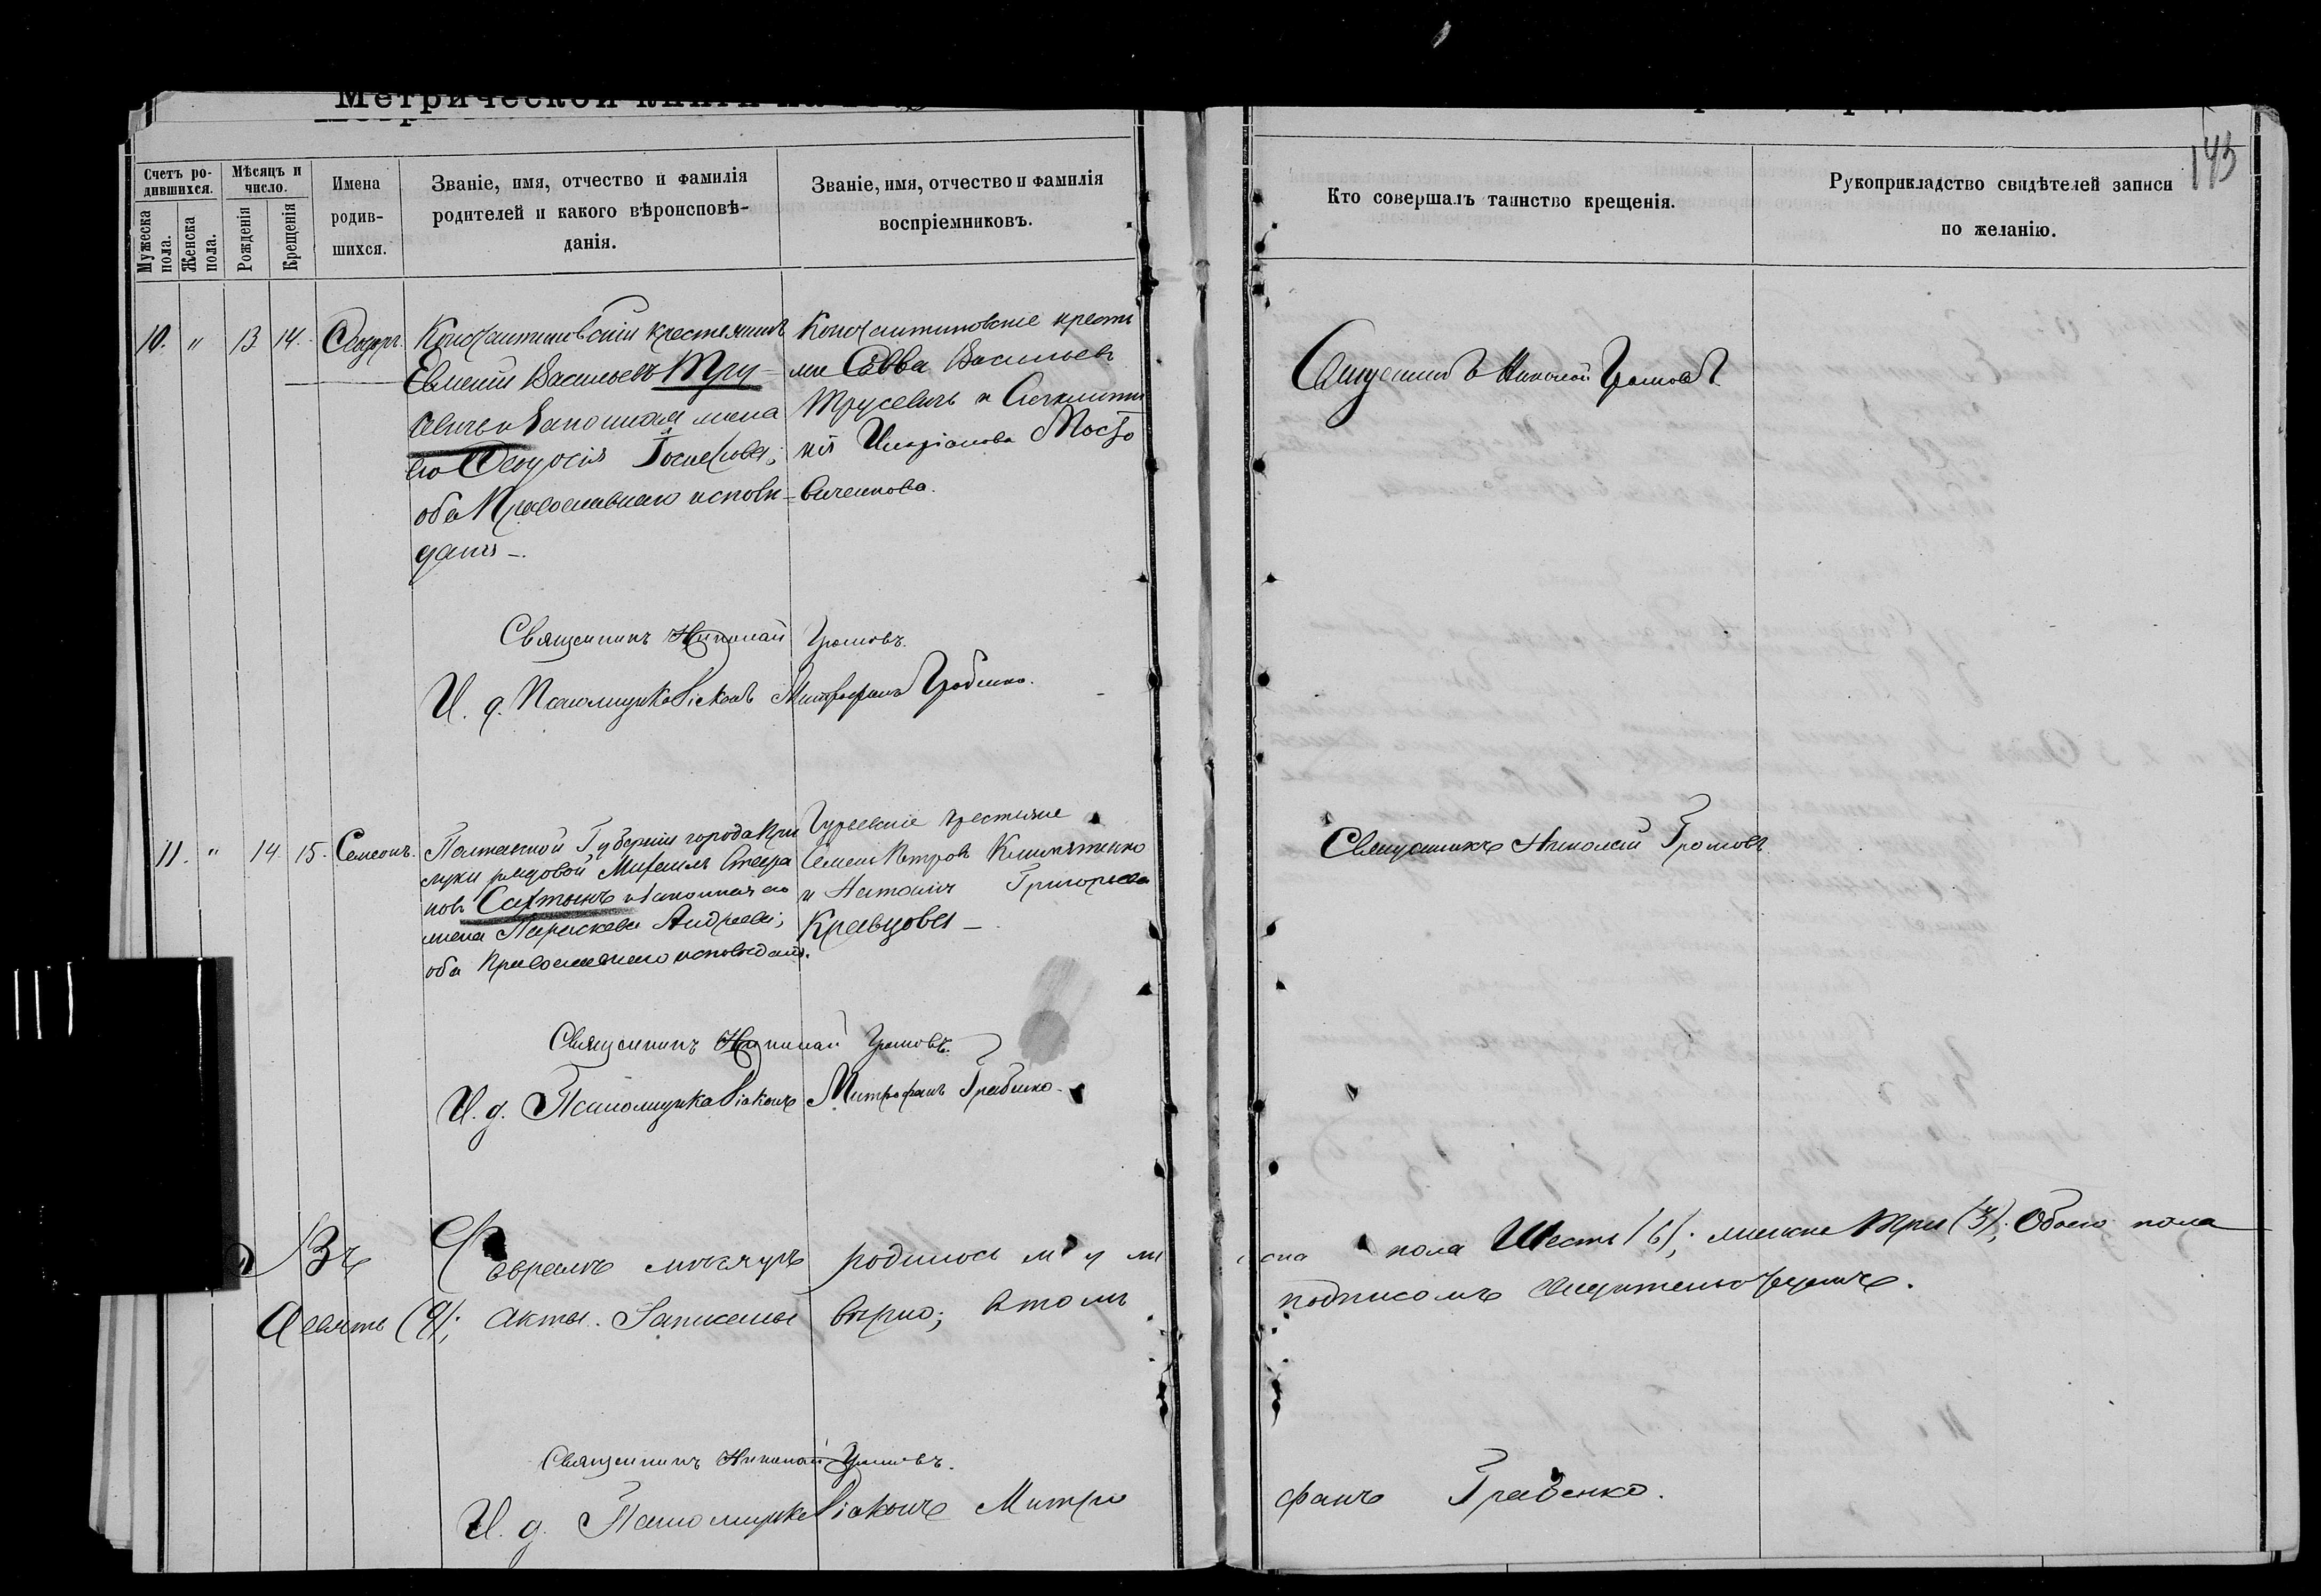 143
Счетъ ро-
дившихся.
Мѣсяцъ и
число.
Мужеска
пола.
Женска
пола.
Рожденія
Крещенія
Имена
родив-
шихся.
Званіе, имя, отчество и фамилія
родителей и какого вѣроисповѣ-
данія.
Званіе, имя, отчество и фамилія
воспріемниковъ.
Кто совершалъ таинство крещенія.
Рукоприкладство свидѣтелей записи
по желанію.
10. " 13 14. Ѳеодоръ.
Константиновскій крестьянинъ
Евменій Васильевъ Тру-
севичъ и законная жена
его Ѳеодосія Іосифова;
оба Православнаго исповѣ-
данія -.
Константиновскіе крестья
не Савва Васильевъ
Трусевичъ и
Мосто
виченкова.
Священникъ Николай Громовъ.
Священникъ Николай Громовъ.
И. д. Псаломщика Діаконъ Митрофанъ Грабенко.
11. " 14. 15. Симеонъ.
Полтавской Губерніи города При
луки рядовой Михаилъ
новъ и законная его
жена Параскева Андреева;
оба Православнаго исповѣданія.
Гурьевскіе крестьяне
Семенъ Петровъ
и Наталія Григорьева
Кравцова -
Священникъ Николай Громовъ
Священникъ Николай Громовъ.
И. д. Псаломщика Діаконъ Митрофанъ Грабенко.
Въ Февралѣ мѣсяцѣ родилось муже
ска пола Шесть (6); женска Три (3); Обоего пола
Девять (9); акты. Записаны вѣрно; въ томъ
подписомъ свидѣтельствуемъ.
Священникъ Николай Громовъ.
И. д. Псаломщика Діаконъ Митро
фанъ Грабенко.